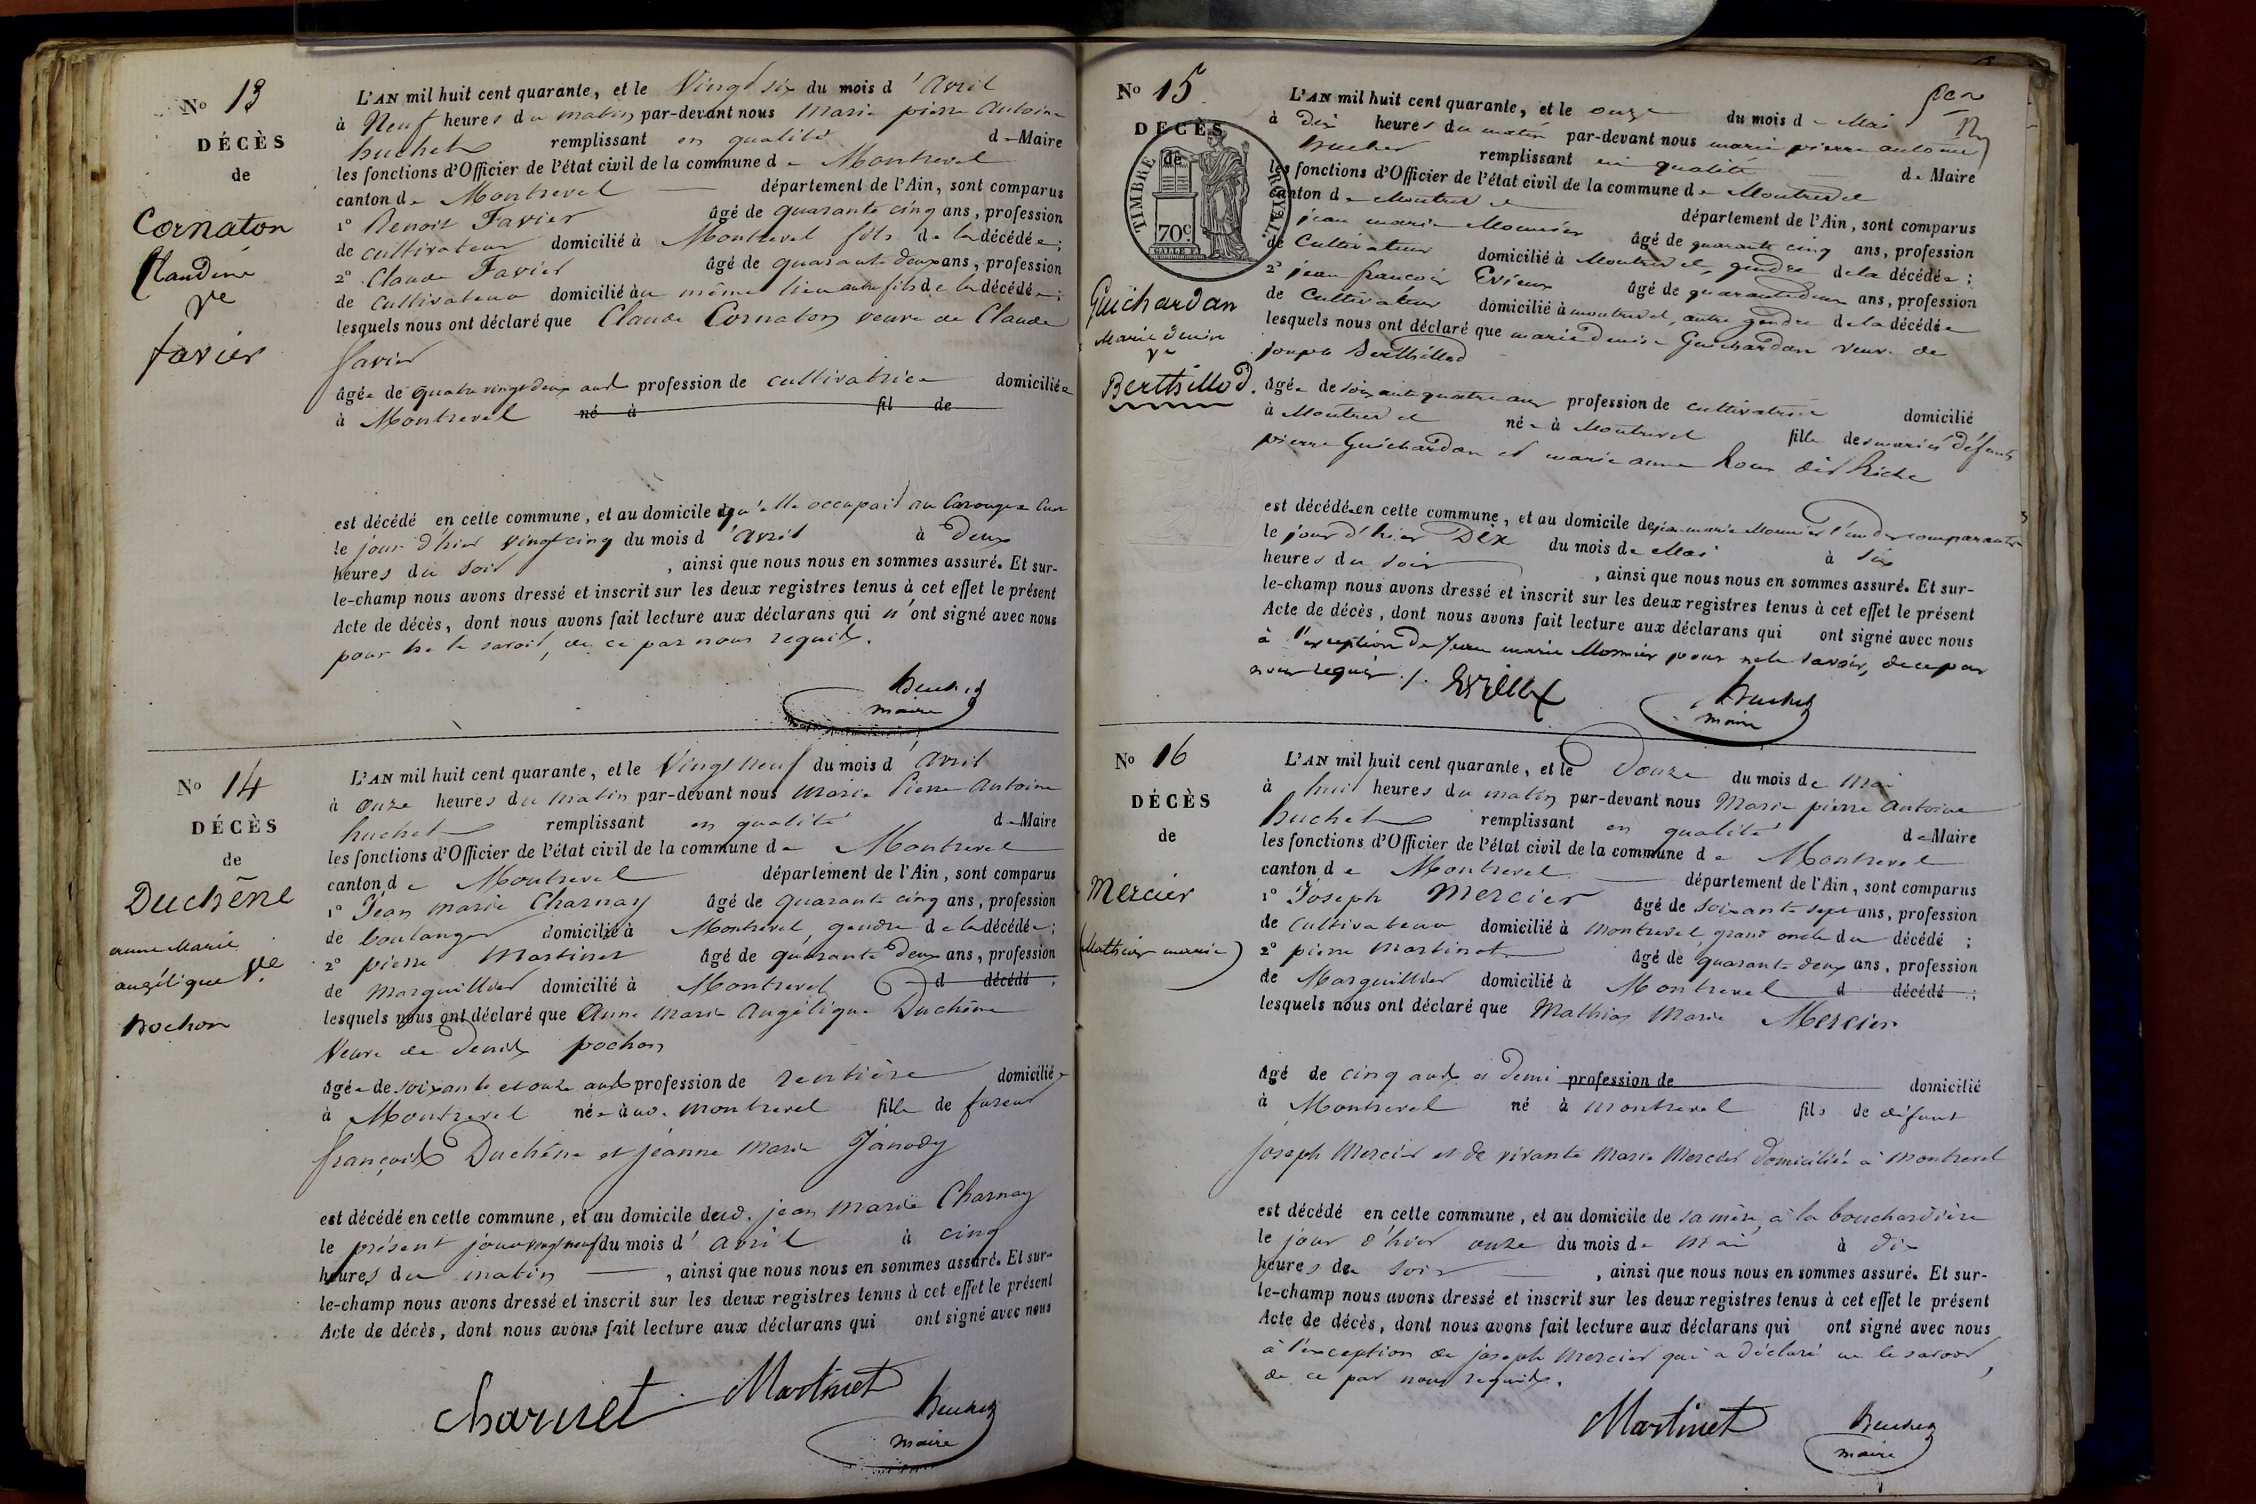 No 13
DÉCÈS
de
Cornaton
Claudine
Ve
favier
L'AN mil huit cent quarante, et le Vingt six du mois d'Avril
à Neuf heures du matin par-devant nous Marie pierre Antoine
huchet remplissant en qualité de Maire
les fonctions d'Officier de l'état civil de la commune de Montrevel
canton de Montrevel département de l'Ain, sont comparus
1o Benoit Favier âgé de quarante cinq ans, profession
de cultivateur domicilié à Montrevel fils de la décédée;
2o Claude Favier âgé de quarante deux ans, profession
de cultivateur domicilié au même lieu autre fils de la décédée;
lesquels nous ont déclaré que Claude Cornaton veuve de Claude
favier
âgée de quatre vingt deux ans profession de cultivatrice domiciliée
à Montrevel né à fil de
est décédé en cette commune, et au domicile qu'elle occupait au
le jour d'hier vingt cinq du mois d'avril à deux
heures du soir, ainsi que nous nous en sommes assuré. Et sur-
le-champ nous avons dressé et inscrit sur les deux registres tenus à cet effet le présent
Acte de décès, dont nous avons fait lecture aux déclarans qui n'ont signé avec nous
pour ne le savoir, de ce par nous requis.
huchet
maire
No 14
DÉCÈS
de
Duchêne
anne Marie
angélique Ve
pochon
L'AN mil huit cent quarante, et le Vingt neuf du mois d'Avril
à onze heures du matin par-devant nous Marie Pierre Antoine
huchet remplissant en qualité de Maire
les fonctions d'Officier de l'état civil de la commune de Montrevel
canton de Montrevel département de l'Ain, sont comparus
1o Jean marie Charnay âgé de quarante cinq ans, profession
de boulanger domicilié à Montrevel, gendre de la décédée;
2o pierre Martinet âgé de quarante deux ans, profession
de Marguillier domicilié à Montrevel d décédé;
lesquels nous ont déclaré que Anne Marie Angélique Duchêne
Veuve de Denis pochon
âgée de soixante et onze ans profession de rentière domiciliée
à Montrevel née à Montrevel fille de
françois Duchêne et jeanne Marie Janody
est décédé en cette commune, et au domicile de jean Marie Charnay
le présent jour vingt neuf du mois d'avril à cinq
heures du matin, ainsi que nous nous en sommes assuré. Et sur-
le-champ nous avons dressé et inscrit sur les deux registres tenus à cet effet le présent
Acte de décès, dont nous avons fait lecture aux déclarans qui ont signé avec nous
Martinet huchet
maire
No 15
DÉCÈS
de
TIMBRE ROYAL
70c
Guichardan
Marie Denise
Ve
Berthillod.
L'AN mil huit cent quarante, et le onze du mois de Mai
à dix heures du matin par-devant nous marie pierre antoine
huchet remplissant en qualité de Maire
les fonctions d'Officier de l'état civil de la commune de Montrevel
canton de Montrevel département de l'Ain, sont comparus
jean marie Monnier âgé de quarante cinq ans, profession
de Cultivateur domicilié à Montrevel, gendre de la décédée;
2o jean françois Evieux âgé de quarante deux ans, profession
de Cultivateur domicilié à montrevel, autre gendre de la décédée
lesquels nous ont déclaré que marie denise Guichardan veuve de
joseph Berthillod
âgée de soixante quatre ans profession de cultivatrice domicilié
à Montrevel née à Montrevel fille des mariés défunts
pierre Guichardan et marie anne Roux dit Riche
est décédée en cette commune, et au domicile de jean marie Monnier l'un des comparants
le jour d'hier Dix du mois de Mai à six
heures du soir, ainsi que nous nous en sommes assuré. Et sur-
le-champ nous avons dressé et inscrit sur les deux registres tenus à cet effet le présent
Acte de décès, dont nous avons fait lecture aux déclarans qui ont signé avec nous
à l'exception de Jean marie Monnier pour ne le savoir, de ce par
nous requis./. Evieux
huchet
maire
No 16
DÉCÈS
de
Mercier
(Mathias marie)
L'AN mil huit cent quarante, et le Douze du mois de Mai
à huit heures du matin par-devant nous Marie pierre Antoine
huchet remplissant en qualité de Maire
les fonctions d'Officier de l'état civil de la commune de Montrevel
canton de Montrevel département de l'Ain, sont comparus
1o Joseph Mercier âgé de soixante sept ans, profession
de cultivateur domicilié à Montrevel, grand oncle du décédé;
2o pierre Martinet âgé de quarante deux ans, profession
de Marguillier domicilié à Montrevel d décédé;
lesquels nous ont déclaré que Mathias Marie Mercier
âgé de cinq ans et demi profession de domicilié
à Montrevel né à Montrevel fils de défunt
joseph Mercier et de vivante Marie Mercier domiciliée à Montrevel
est décédé en cette commune, et au domicile de sa mère, à la bouchardière
le jour d'hier onze du mois de Mai à dix
heures du soir, ainsi que nous nous en sommes assuré. Et sur-
le-champ nous avons dressé et inscrit sur les deux registres tenus à cet effet le présent
Acte de décès, dont nous avons fait lecture aux déclarans qui ont signé avec nous
à l'exception de joseph Mercier qui a déclaré ne le savoir,
de ce par nous requis.
Martinet huchet
maire